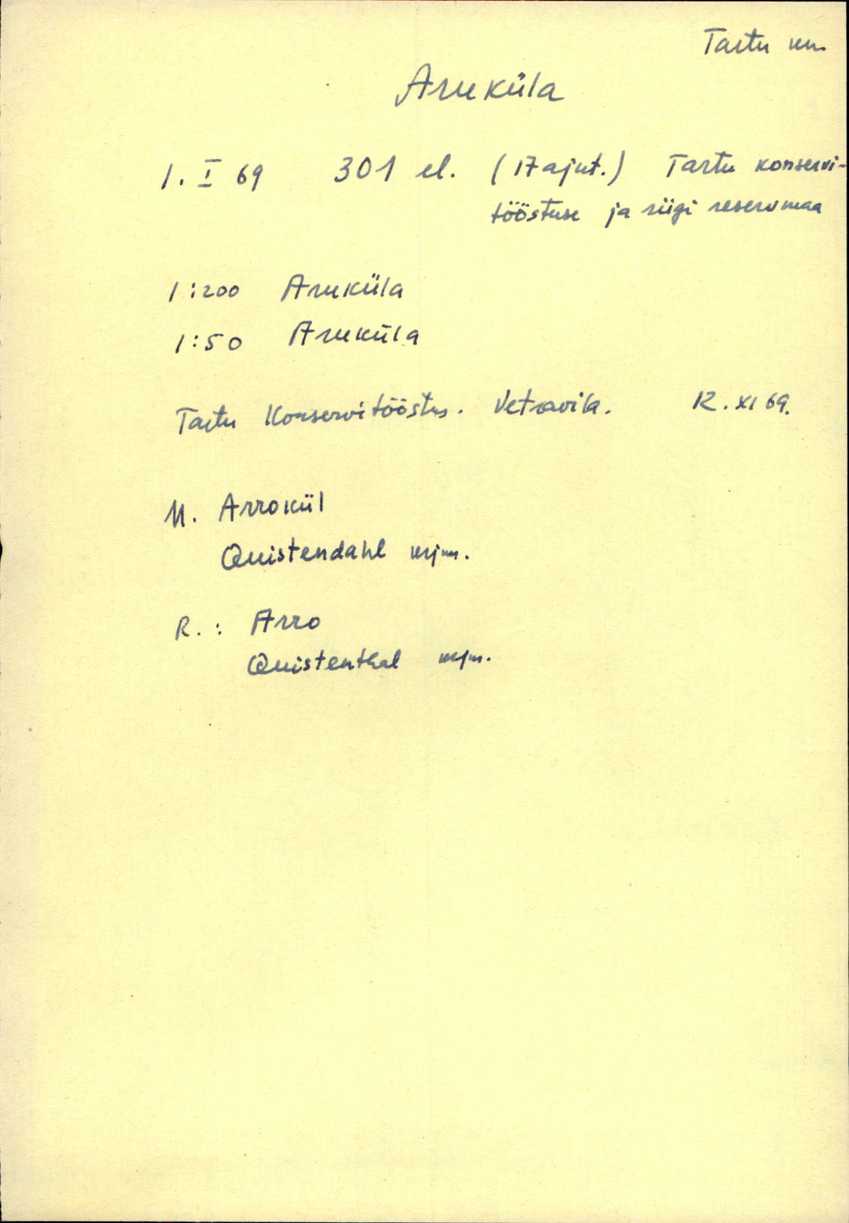 Tartu kn.
Aruküla
1. I 69 301 el. (17 ajut.) Tartu konservi-
tööstuse ja riigi reservmaa
1:200 Aruküla
1:50 Aruküla
Tartu Konservitööstus. 12. XI 69.
M. Arrokül
Quistendahl mjm.
R. : Arro
Quistenthal mjm.